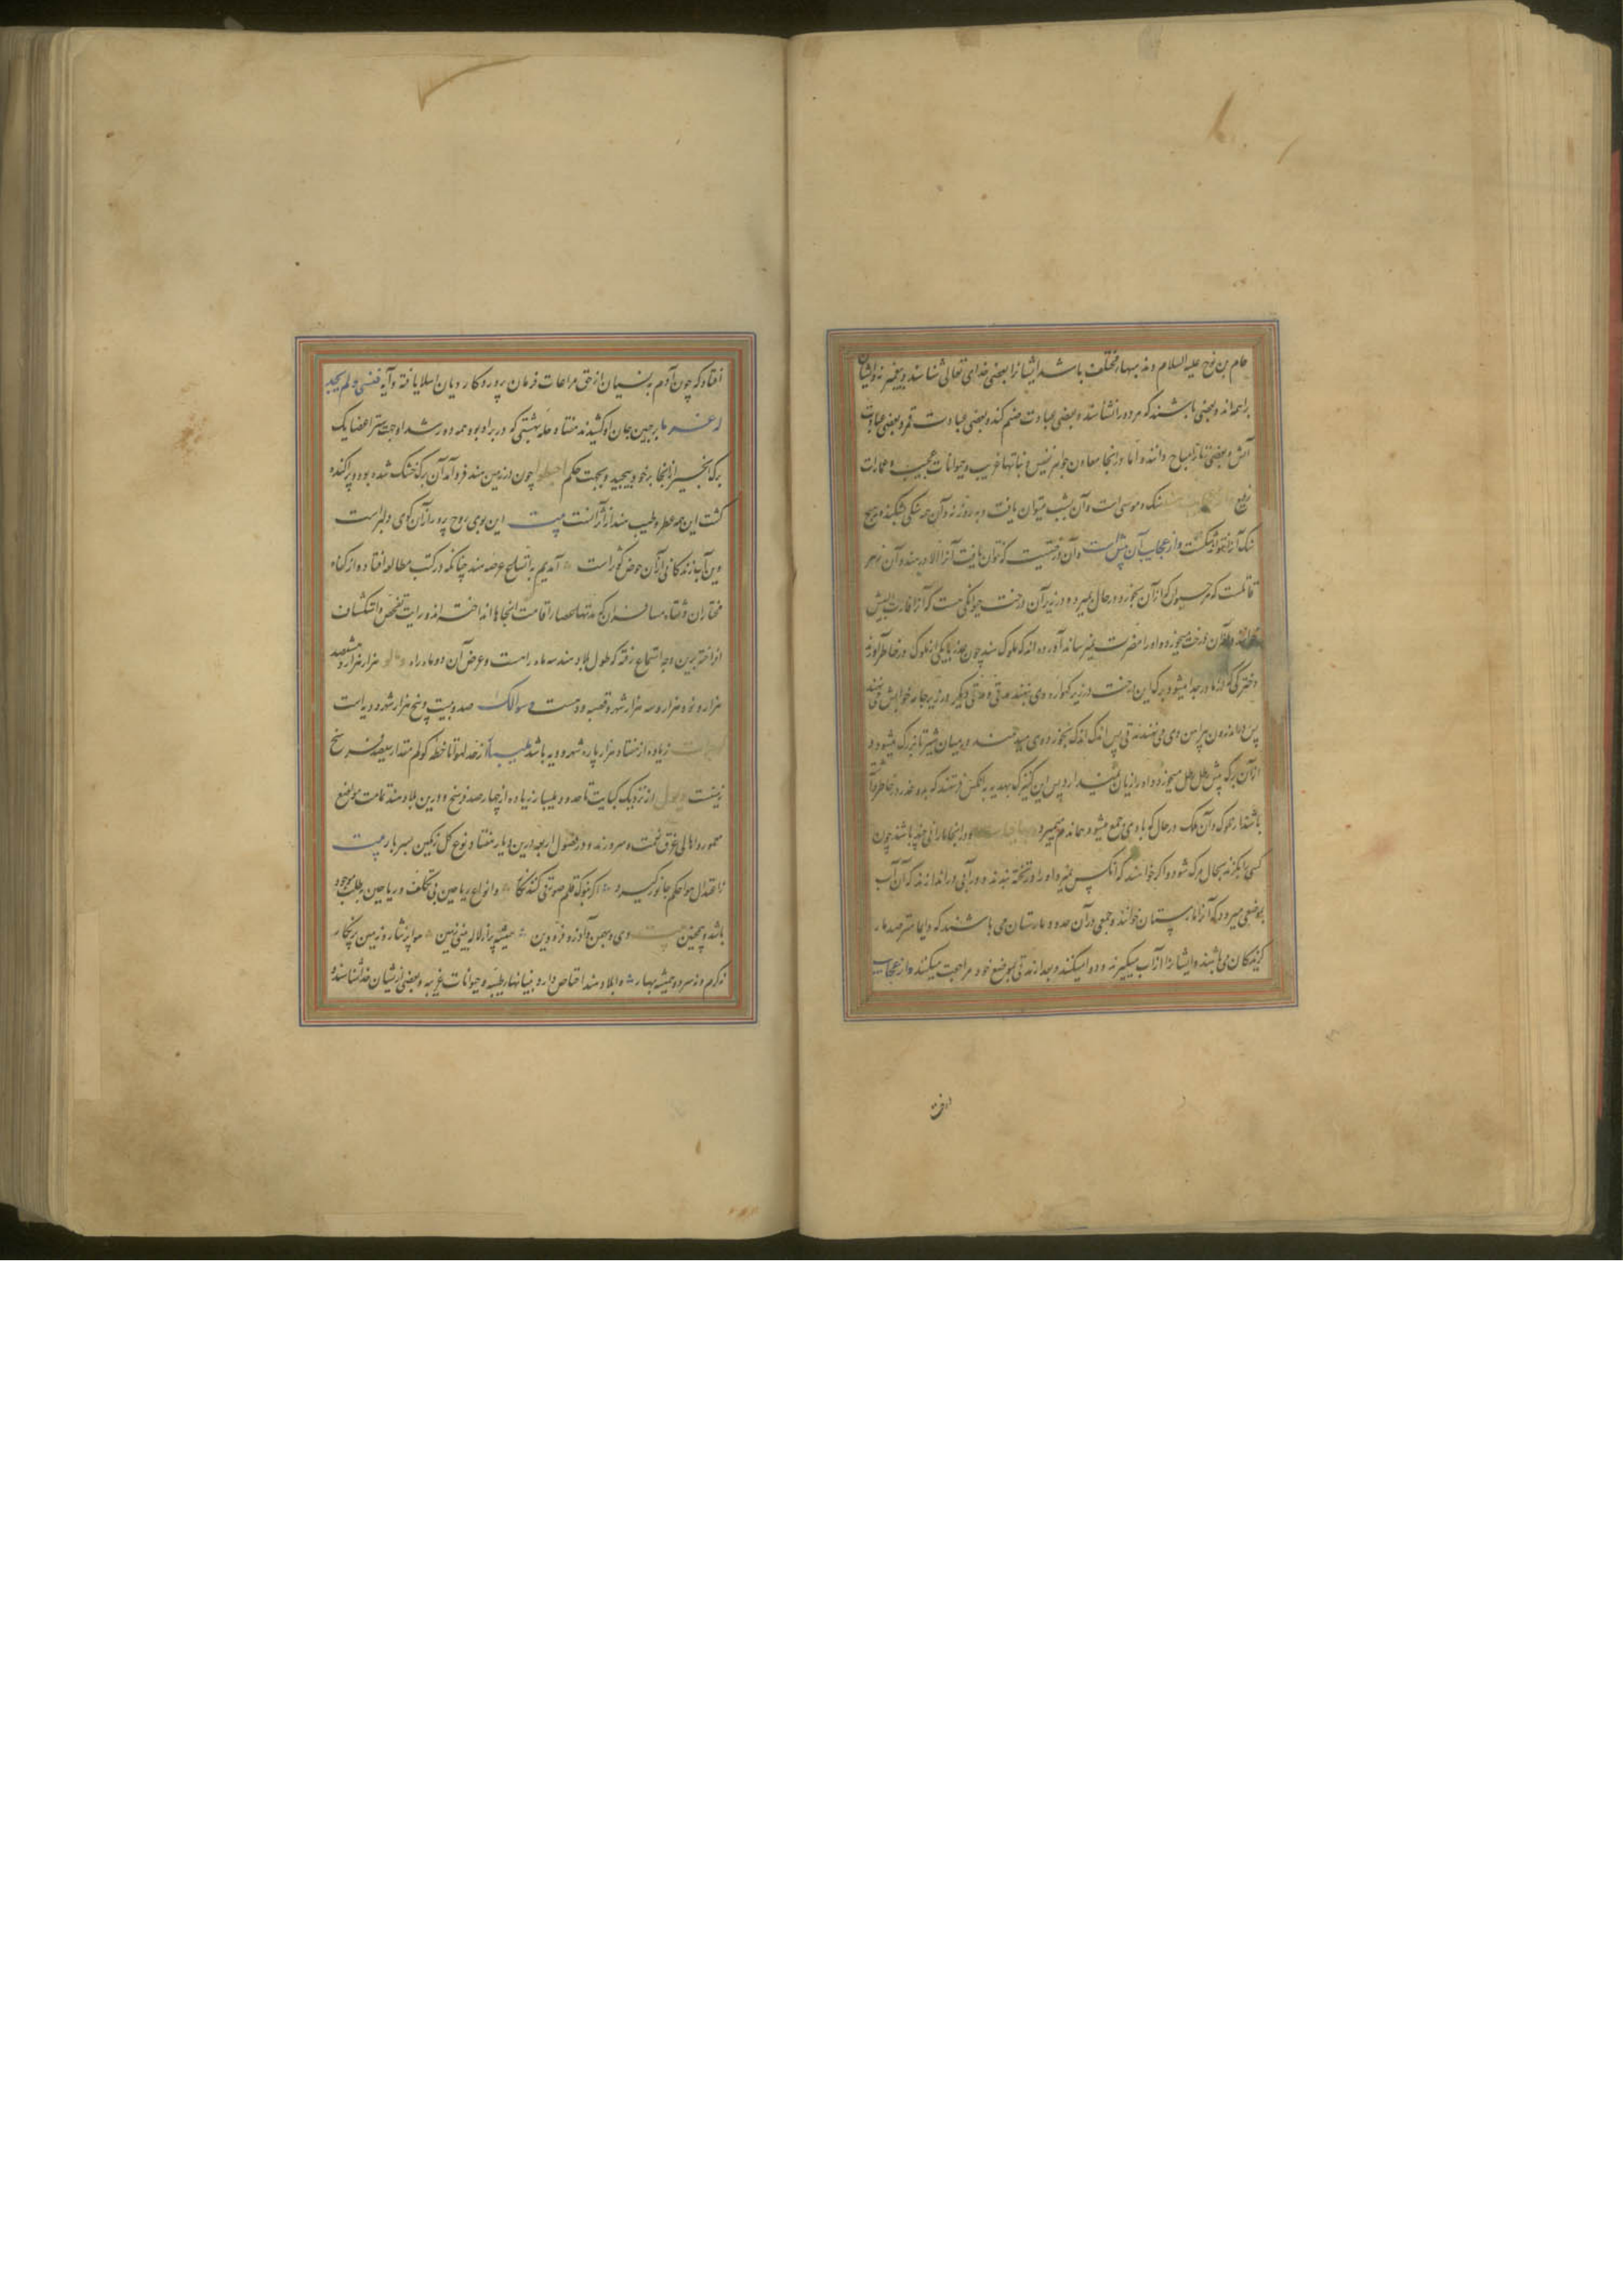 حام بن نوح علیه السلام ومذهبهای مختلف باشد ایشانرا بعضی خدای تعالی شناسند و پیغمبر نه و ایشان
براهمه اند و بعضی باشند که هر دو را نشناسند و بعضی عبادت صنم کنند و بعضی عبادت قمر و بعضی عبادت
آتش و بعضی زنا را مباح دانند و اما در اینجا معادن جواهر نفیس و نباتها غریب و حیوانات عجیب و عمارات
رفیع سنگ و موسی است و آن بشب میتوان یافت و به روز نه و آن هر سنگی بشکند و هیچ
سنگ آنرا نتواند شکست و از عجایب آن بیش است و آن درختیست که نتوان یافت آنرا الا در هند و آن زهر
قاتلست که هر حیوان که از آن بخورد در حال بمیرد و در زیر آن درخت حیوانکی هست که آنرا فارة البیش
خوانند و از آن درخت میخورد و او را مضرت نمیرساند آورده اند که ملوک هند چون غدر با یکی از ملوک در خاطر آورند
دخترکی که از مادر جدا میشود برک این درخت در زیر کهواره وی بنهند مدتی و مدتی دیگر در زیر جامه خوابش می نهند
پس در اندرون پیراهن وی می نهند مدتی پس اندک اندک بخورد وی میدهند در میان شیر تا بزرگ میشود و
از آن برک بیش میخورد و او را زیان نمیدارد پس این کنیزک بهدیه به آنکس فرستند که بدو غدر در خاطر دارند
باشند از ملوک و آن ملک در حال که با وی جمع میشود هماندم میمیرد و در آنجا مارانی چند باشند چون
کسی را بگزند بحال مرک شود و اگر خواهند که آنکس نمیرد او را در تخته بندند و در آبی دراندازند که آن آب
بموضعی میرود که آنرا مارستان خوانند و جمعی در آن حدود مارستان می باشند که دایما مترصد مار
گزیدگان می باشند و ایشانرا از آب میگیرند و دوا میکنند و بعد از مدتی بموضع خود مراجعت میکنند و از عجایب
افتاد که چون آدم به نسیان از حق مراعات فرمان پروردکار و یان ابتلا یافته و آیه فنسی ولم نجد
له عزما بر جبین جان او کشیدند هفتاد حله بهشتی که در بر او بود همه دور شد او جهت ستر اعضا یک
برک انجیر از آنجا بر خود پیچید و بجهت حکم اهبطوا چون در زمین هند فرو آمد آن برک خشک شده بود و پراکنده
گشت این همه عطر و طیب هند از آثار آنست بیت این بوی روح پرور از آن کوی دلبرست
وین آب زندکانی از آن حوض کوثرست آمدیم به تسطیح عرصه هند چنانکه در کتب مطالعه افتاده و از کفاه
مختاران و ثقاه مسافران که مدتها عصا اقامت آنجاها انداخته اند و رایت تفحص و استکشاف
افراخته برین وجه استماع رفته که طول بلاد هند سه ماه راهست و عرض آن دو ماه راه هزار هزار و هشتصد
هزار و نود هزار و سه هزار شهر و قصبه و دهست و سوالک صد و بیست و پنج هزار شهر و دیه است
زیاده از هفتاد هزار پاره شهر و دیه باشد ملیبار از حد لهوتا خطه کولم مقدار سیصد فرسنخ
زمینست از نزدیک کنبایت تا حدود ملیبار زیاده از چهارصد فرسنخ و درین بلاد هند تمامت مواضع
معمور و اهالی غرق نعمت و سرورند و در فصول اربعه درین دیار هفتاد نوع کل رنکین بسر بار بیت
ز اعتدال هوا حکم جانور گیرد اگر بنوک قلم صورتی کنند نکار و انواع ریاحین بی تکلف و ریاحین بی طلب موجود
باشد و همچنین دی و بهمن و آذر و فرودین همیشه پر از لاله بینی زمین هوا پر نثار و زمین پر نکار
نه گرم و نه سرد و همیشه بهار و بلاد هند اختصاص دارد بنباتها طیبه و حیوانات غریبه و بعضی از ایشان خداشناسند و
درخت